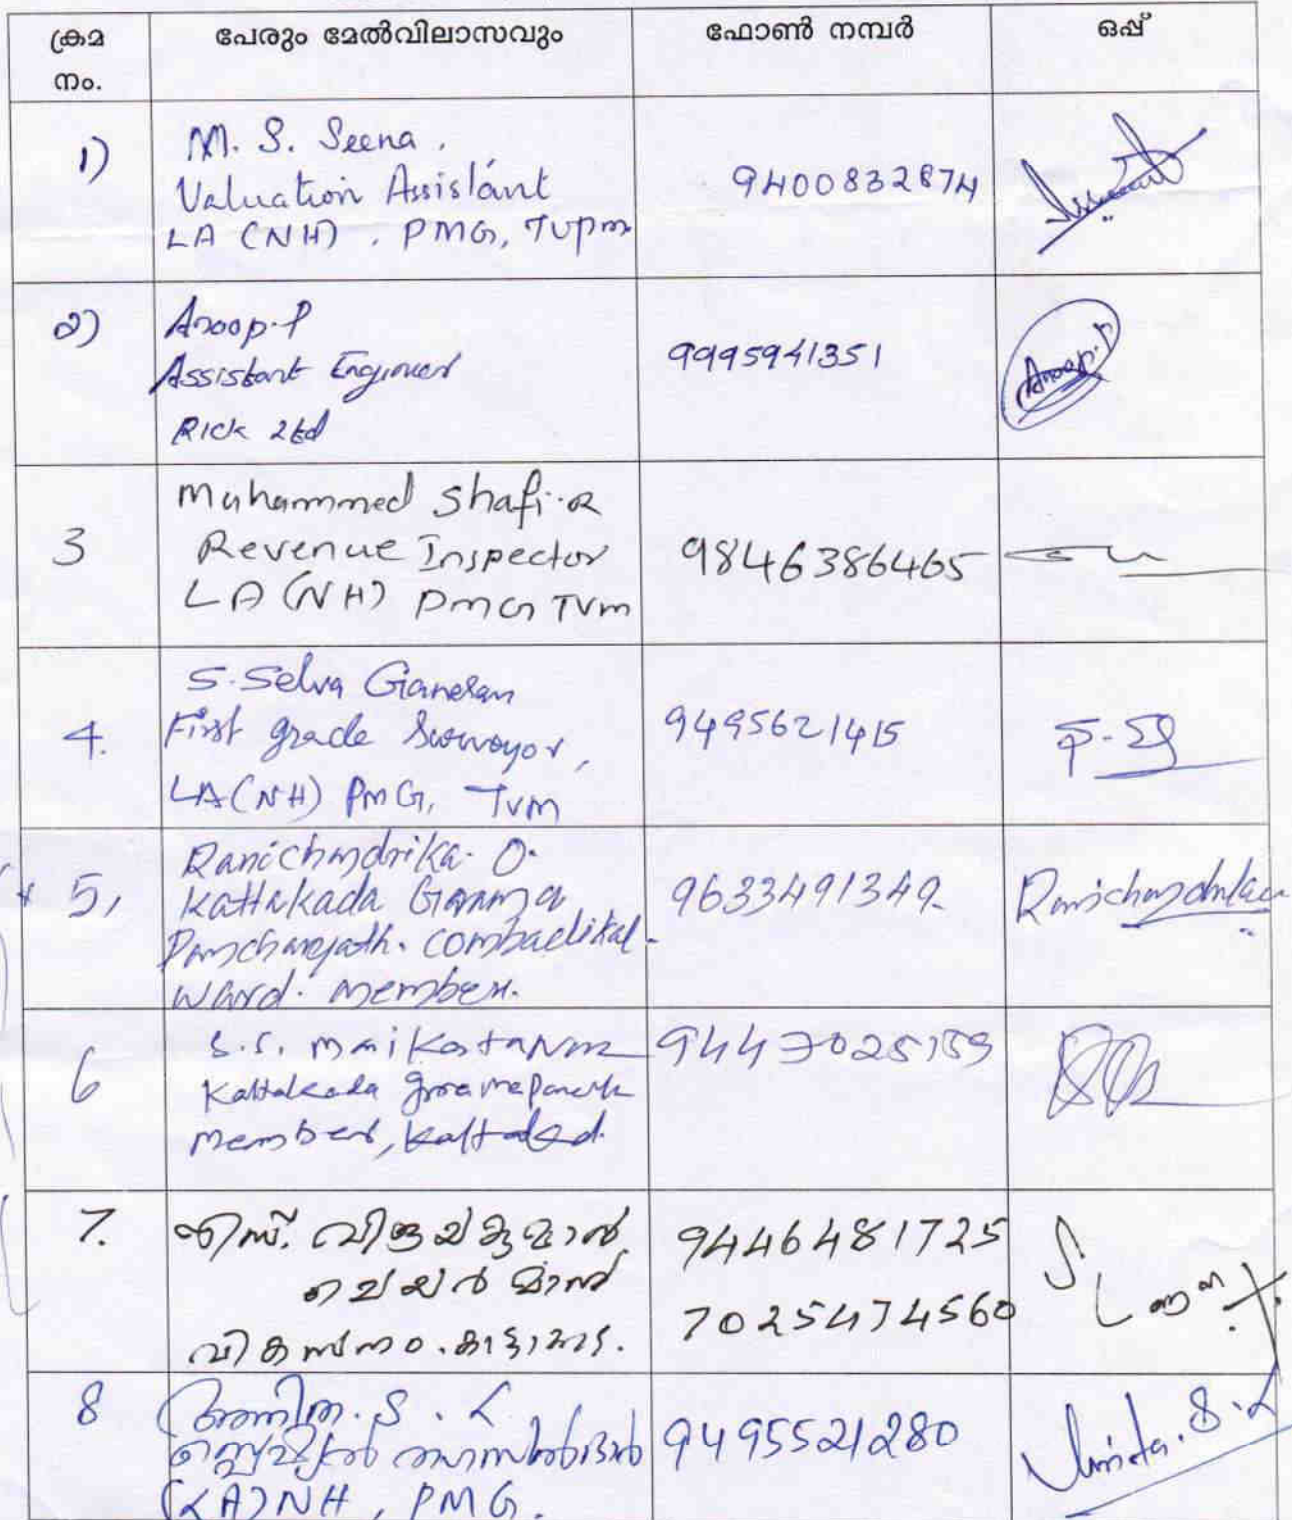 ക്രമ
നം.
പേരും മേൽവിലാസവും
ഫോൺ നമ്പർ
ഒപ്പ്
1)
M. S. Seena,
Valuation Assistant
LA (NH), PMG, Tvpm
9400832874
2)
Anoop.P
Assistant Engineer
RICK Ltd
9995941351
Anoop.P
3
Muhammed Shafi.R
Revenue Inspector
LA (NH) PMG TVM
9846386465
4.
S. Selva Ganesan
First grade Surveyor,
LA (NH) PMG, TVM
9495621415
5,
Ranichandrika. O.
Kattakada Grama
Panchayath.
ward. member.
9633491349
Ranichandrika
6
S.S.
Kattakada
Member,
7.
എസ്. വിജയകുമാർ
ചെയർമാൻ
വികസനം. കാട്ടാക്കട.
9446481725
7025474560
8
അനിത. S. L
സ്പെഷ്യൽ തഹസിൽദാർ
(LA) NH, PMG.
9495521280
Anita. S. L